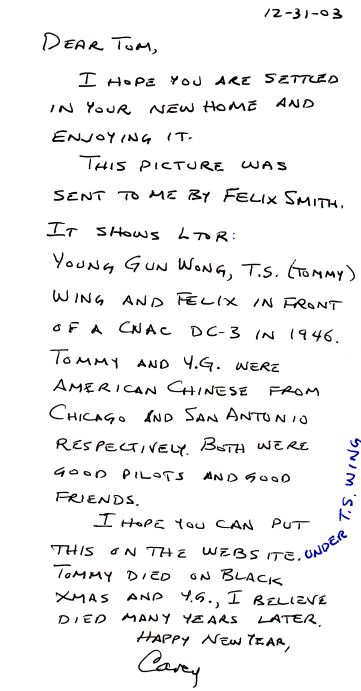 12-31-03
DEAR TOM,
I HOPE YOU ARE SETTLED
IN YOUR NEW HOME AND
ENJOYING IT.
THIS PICTURE WAS
SENT TO ME BY FELIX SMITH.
IT SHOWS LTOR:
YOUNG GUN WONG, T.S. (TOMMY)
WING AND FELIX IN FRONT
OF A CNAC DC-3 IN 1946.
TOMMY AND Y.G. WERE
AMERICAN CHINESE FROM
CHICAGO AND SAN ANTONIO
RESPECTIVELY. BOTH WERE
GOOD PILOTS AND GOOD
FRIENDS.
I HOPE YOU CAN PUT
THIS ON THE WEBSITE. UNDER T.S. WING
TOMMY DIED ON BLACK
XMAS AND Y.G., I BELIEVE
DIED MANY YEARS LATER.
HAPPY NEW YEAR,
Carey